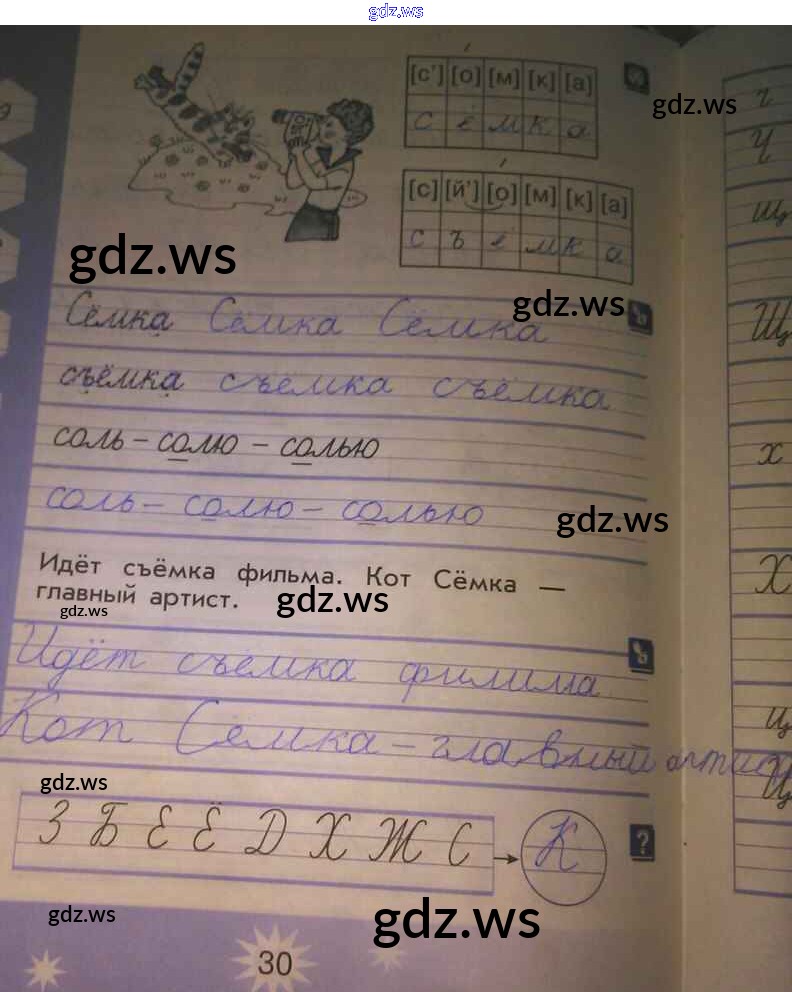 gdz.ws
[с'] [о] [м] [к] [а]
с ё м к а
gdz.ws
[с] [й'] [о] [м] [к] [а]
с ъ ё м к а
gdz.ws
gdz.ws
Сёмка Семка Сёмка
съёмка съёмка съёмка
соль – солю – солью
соль – солю – солью
gdz.ws
Идёт съёмка фильма. Кот Сёмка —
главный артист.
gdz.ws
gdz.ws
Идёт съемка фильма
Кот Семка – главный артис
gdz.ws
З Б Е Ё Д Х Ж С К
?
gdz.ws
gdz.ws
30
г
Ч
щ
Щ
х
Х
ц
Ц